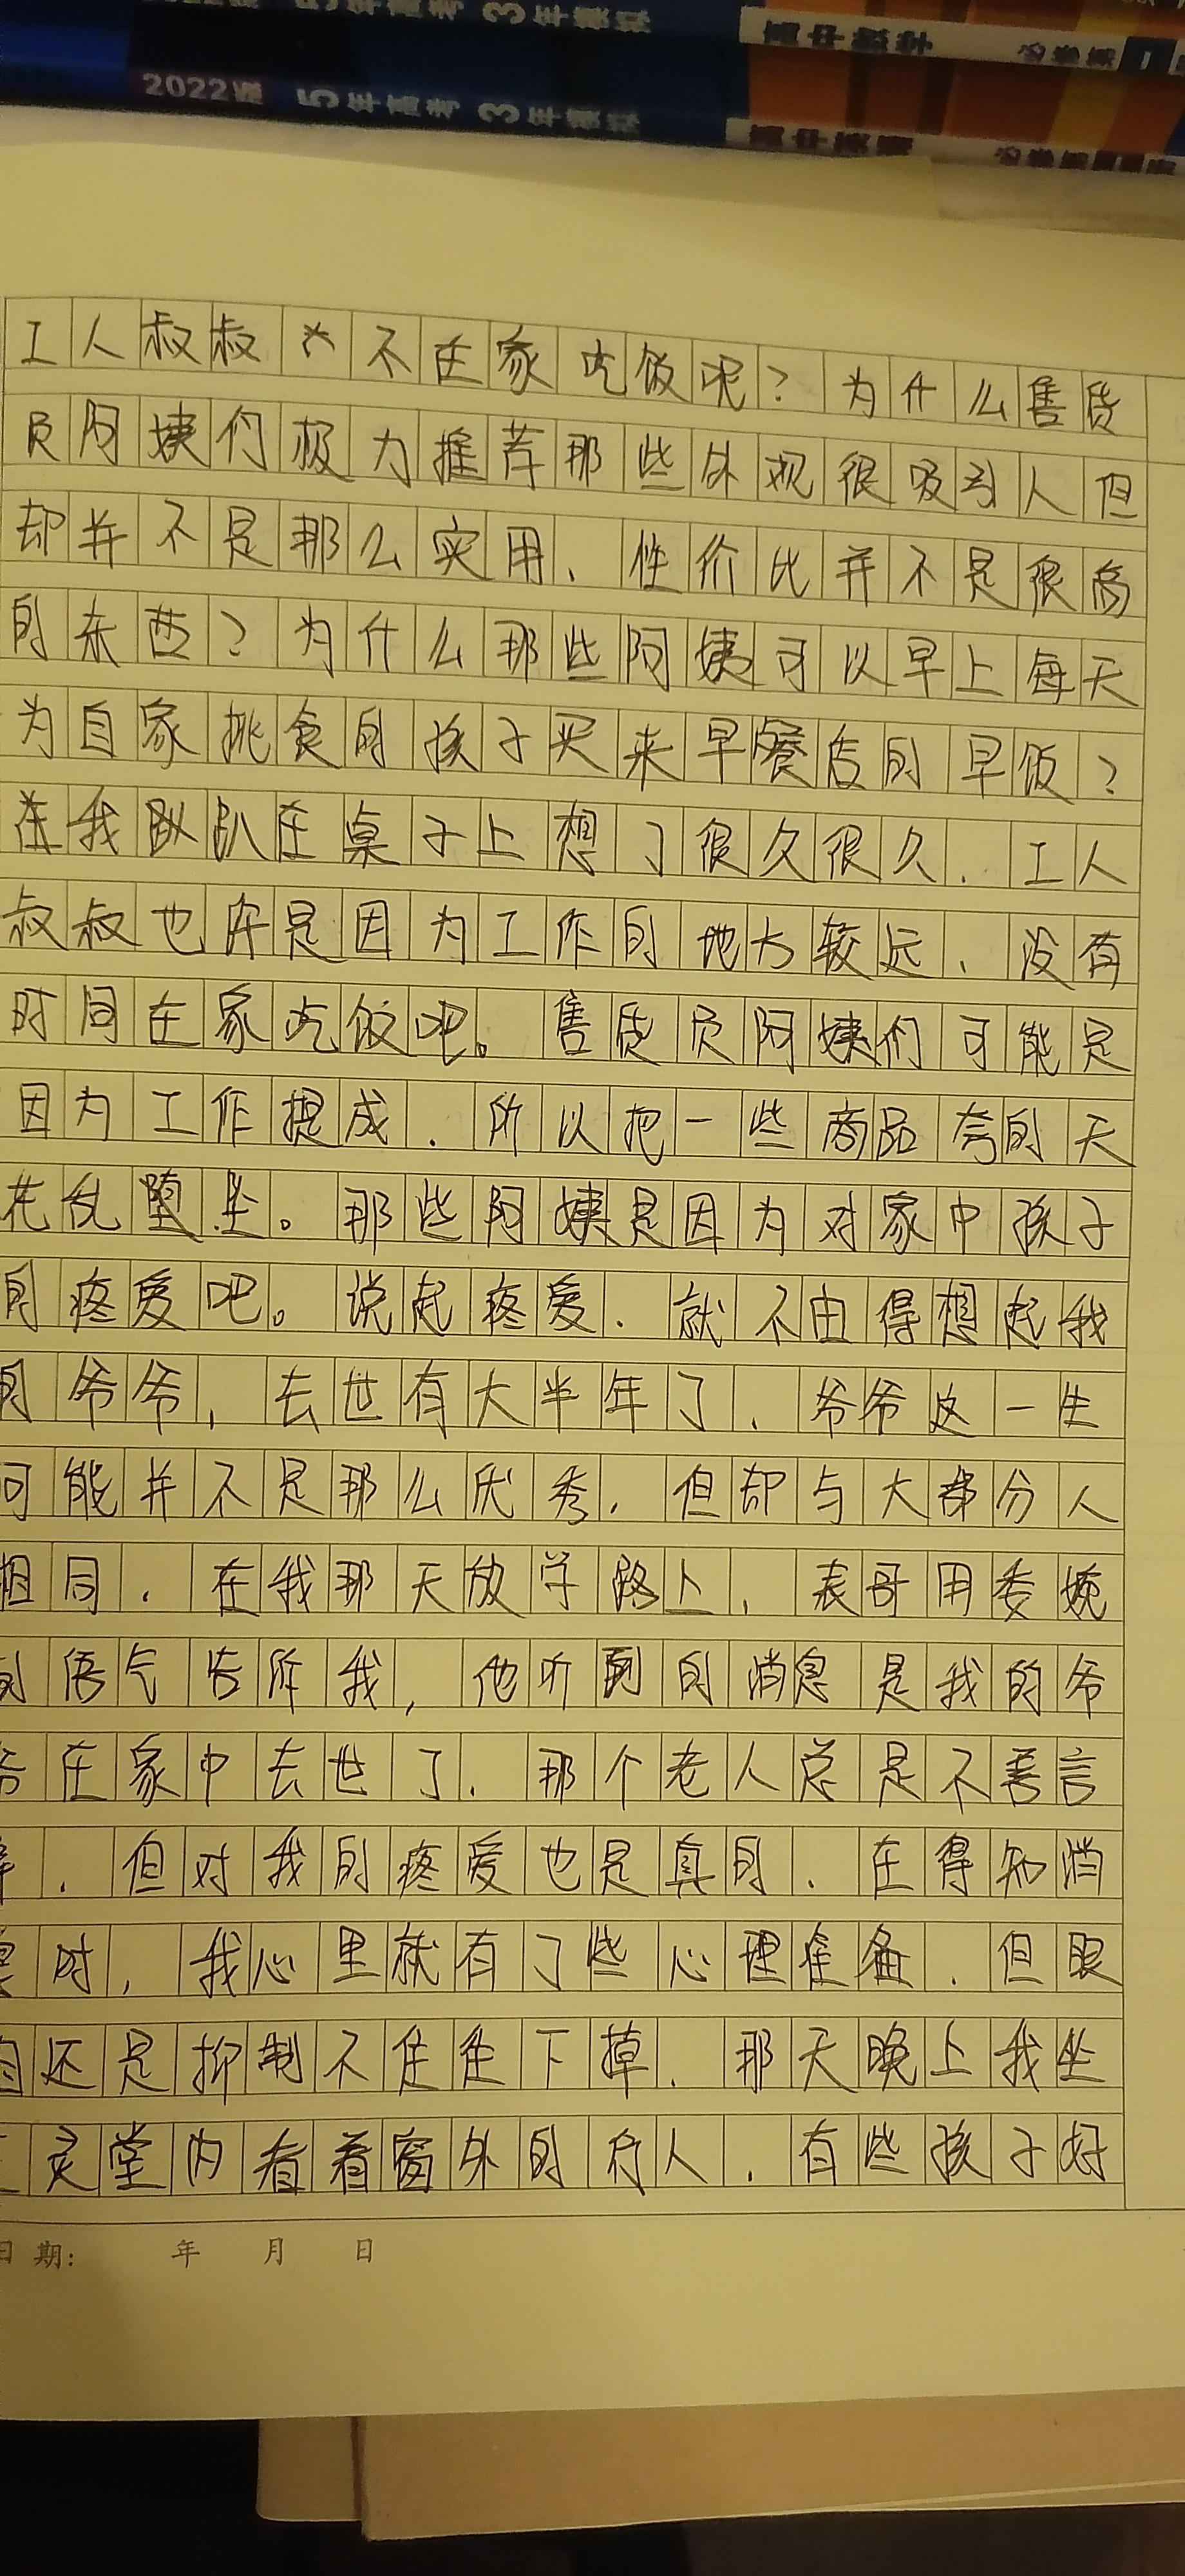 5年高考 3年模拟
2022版 5年高考 3年模拟
工人叔叔不在家吃饭呢?为什么售货
员阿姨们极力推荐那些外观很吸引人但
却并不是那么实用、性价比并不是很高
的东西?为什么那些阿姨可以早上每天
为自家挑食的孩子买来早餐店的早饭?
我趴在桌子上想了很久很久.工人
叔叔也许是因为工作的地方较远、没有
时间在家吃饭吧。售货员阿姨们可能是
因为工作提成.所以把一些商品夸的天
花乱坠。那些阿姨是因为对家中孩子
的疼爱吧。说起疼爱.就不由得想起我
的爷爷,去世有大半年了.爷爷这一生
可能并不是那么优秀.但却与大部分人
相同.在我那天放学路上,表哥用委婉
的语气告诉我,他听到的消息是我的爷
爷在家中去世了.那个老人总是不善言
辞.但对我的疼爱也是真的.在得知消
息时,我心里就有了些心理准备.但眼
泪还是抑制不住往下掉.那天晚上我坐
在灵堂内看着窗外的行人.有些孩子好
日期: 年 月 日